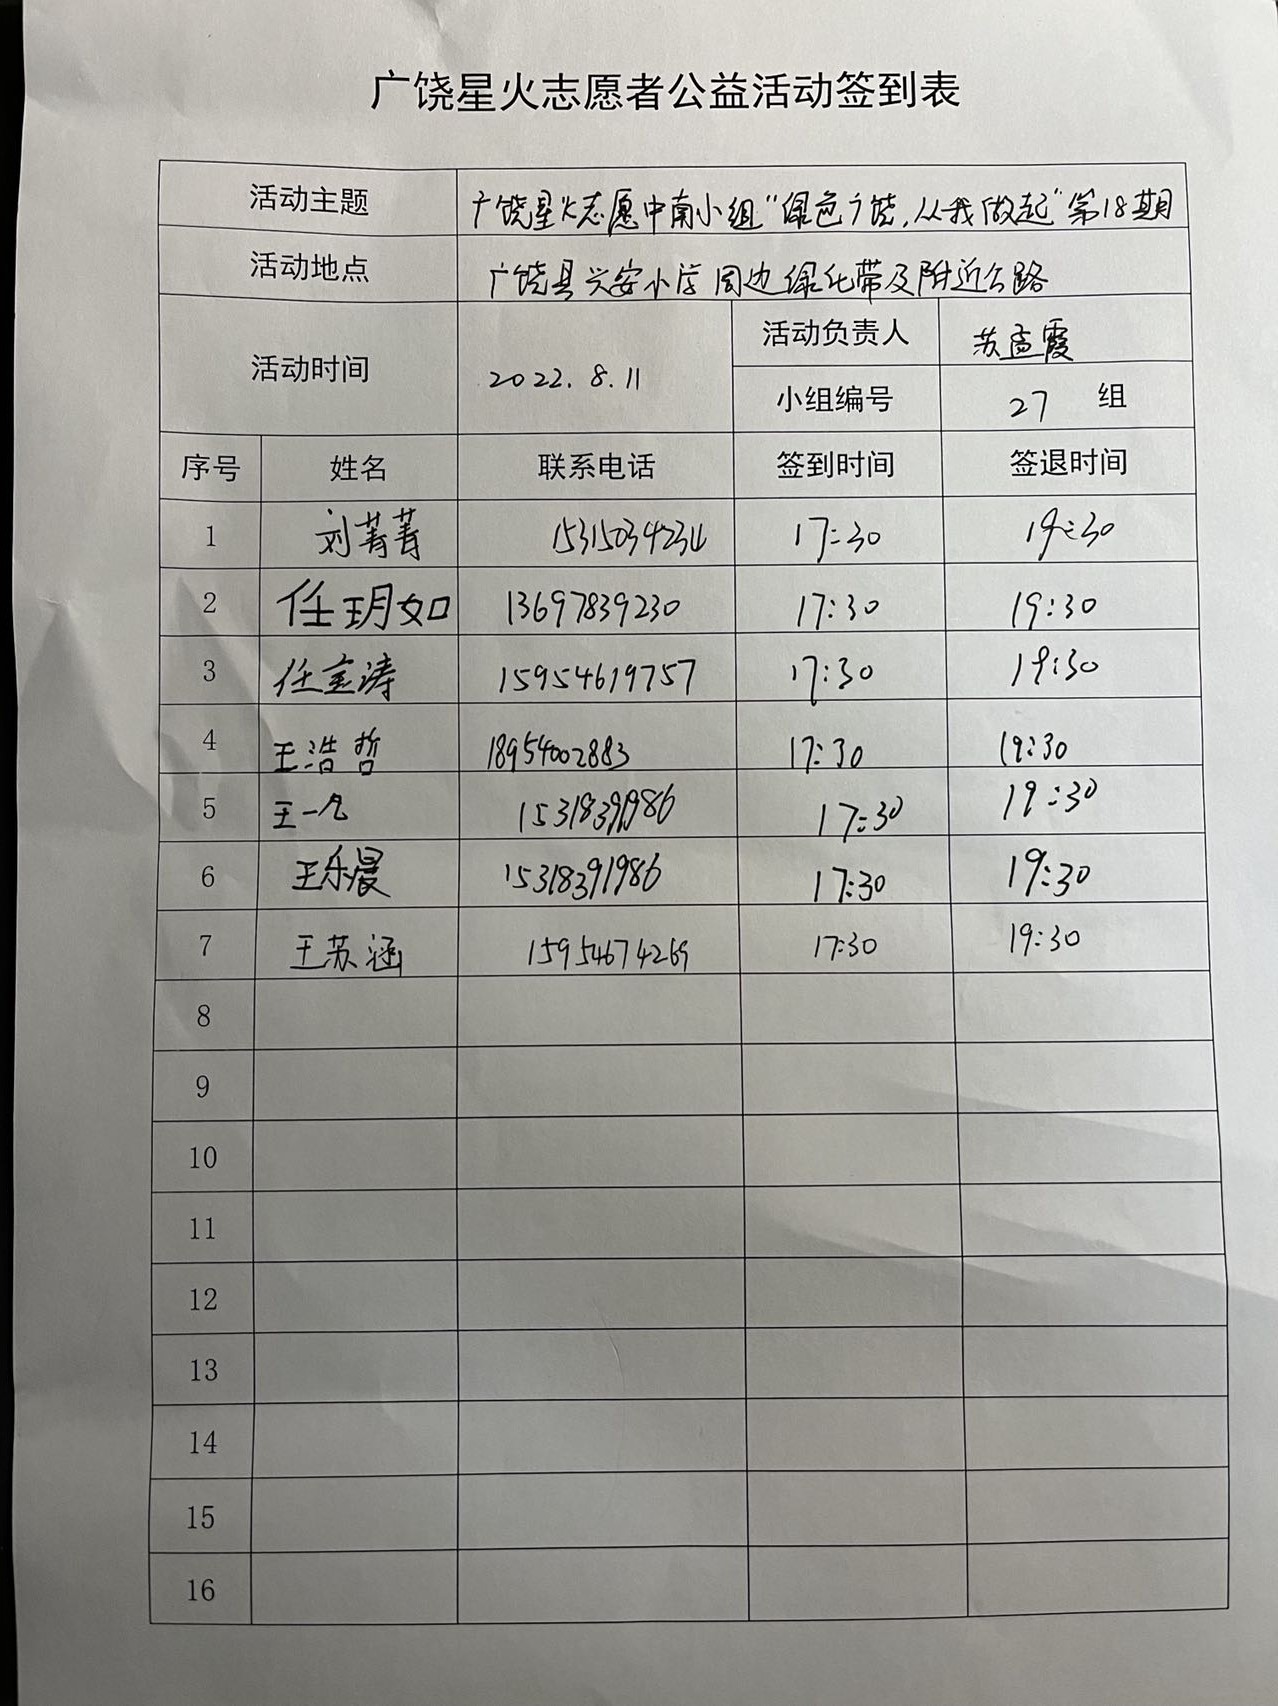 广饶星火志愿者公益活动签到表
活动主题 广饶星火志愿中南小组"绿色广饶,从我做起"第18期
活动地点 广饶县兴安小学周边绿化带及附近公路
活动时间 2022.8.11 活动负责人 苏孟霞
小组编号 27 组
序号 姓名 联系电话 签到时间 签退时间
1 刘菁菁 15315034234 17:30 19:30
2 任玥如 13697839230 17:30 19:30
3 任宝涛 15954619757 17:30 19:30
4 王浩哲 18954002883 17:30 19:30
5 王一凡 15318391986 17:30 19:30
6 王乐晨 15318391986 17:30 19:30
7 王苏涵 15954674269 17:30 19:30
8
9
10
11
12
13
14
15
16